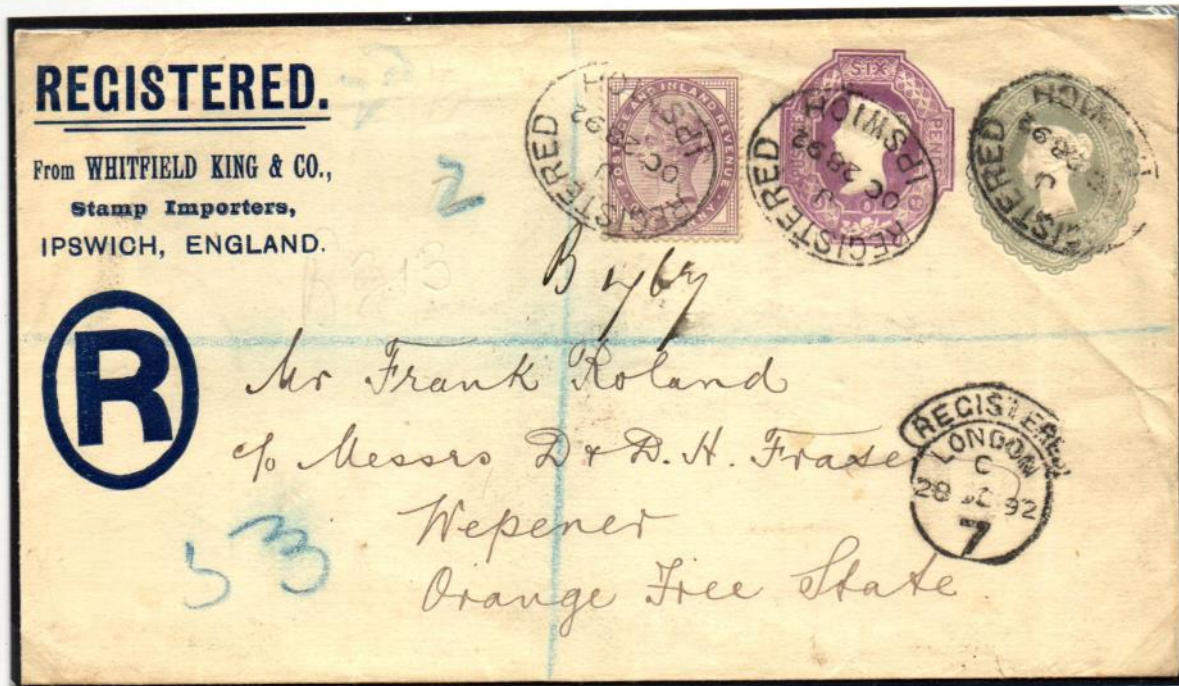 REGISTERED.
From WHITFIELD KING & CO.,
Stamp Importers,
IPSWICH, ENGLAND.
2
POSTAGE AND INLAND REVENUE
REGISTERED
IPSWICH
OC 28 92
SIX PENCE
REGISTERED
IPSWICH
J
OC 28 92
REGISTERED
J
28 92
B
R
Mr Frank Roland
c/o Messrs D & D. H. Fraser
Wepener
Orange Free State
REGISTERED
LONDON
C
28 OC 92
7